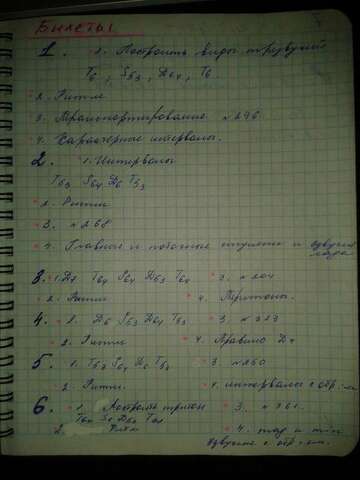 Билеты
1. 1. Построить виды трезвучий
T6, S53, D64, T6
2. Ритм
3. Транспортирование №296
4. Характерные интервалы.
2. 1. Интервалы
T53 S64 D6 T53
2. Ритм
3. №268
4. Главные и побочные ступени и
3. 1. D7 T64 S64 D53 T64 3. №204
2. Ритм 4. Тритоны.
4. 1. D6 S53 D64 T53 3. №323
2. Ритм 4. Правило D7
5. 1. T53 S64 D6 T53 3. №250
2. Ритм. 4. интервалы с обр
6. 1. Построить тритоны 3. №361
T64 S6 D64 T64
2. Ритм 4. maj и min
звучие с обр